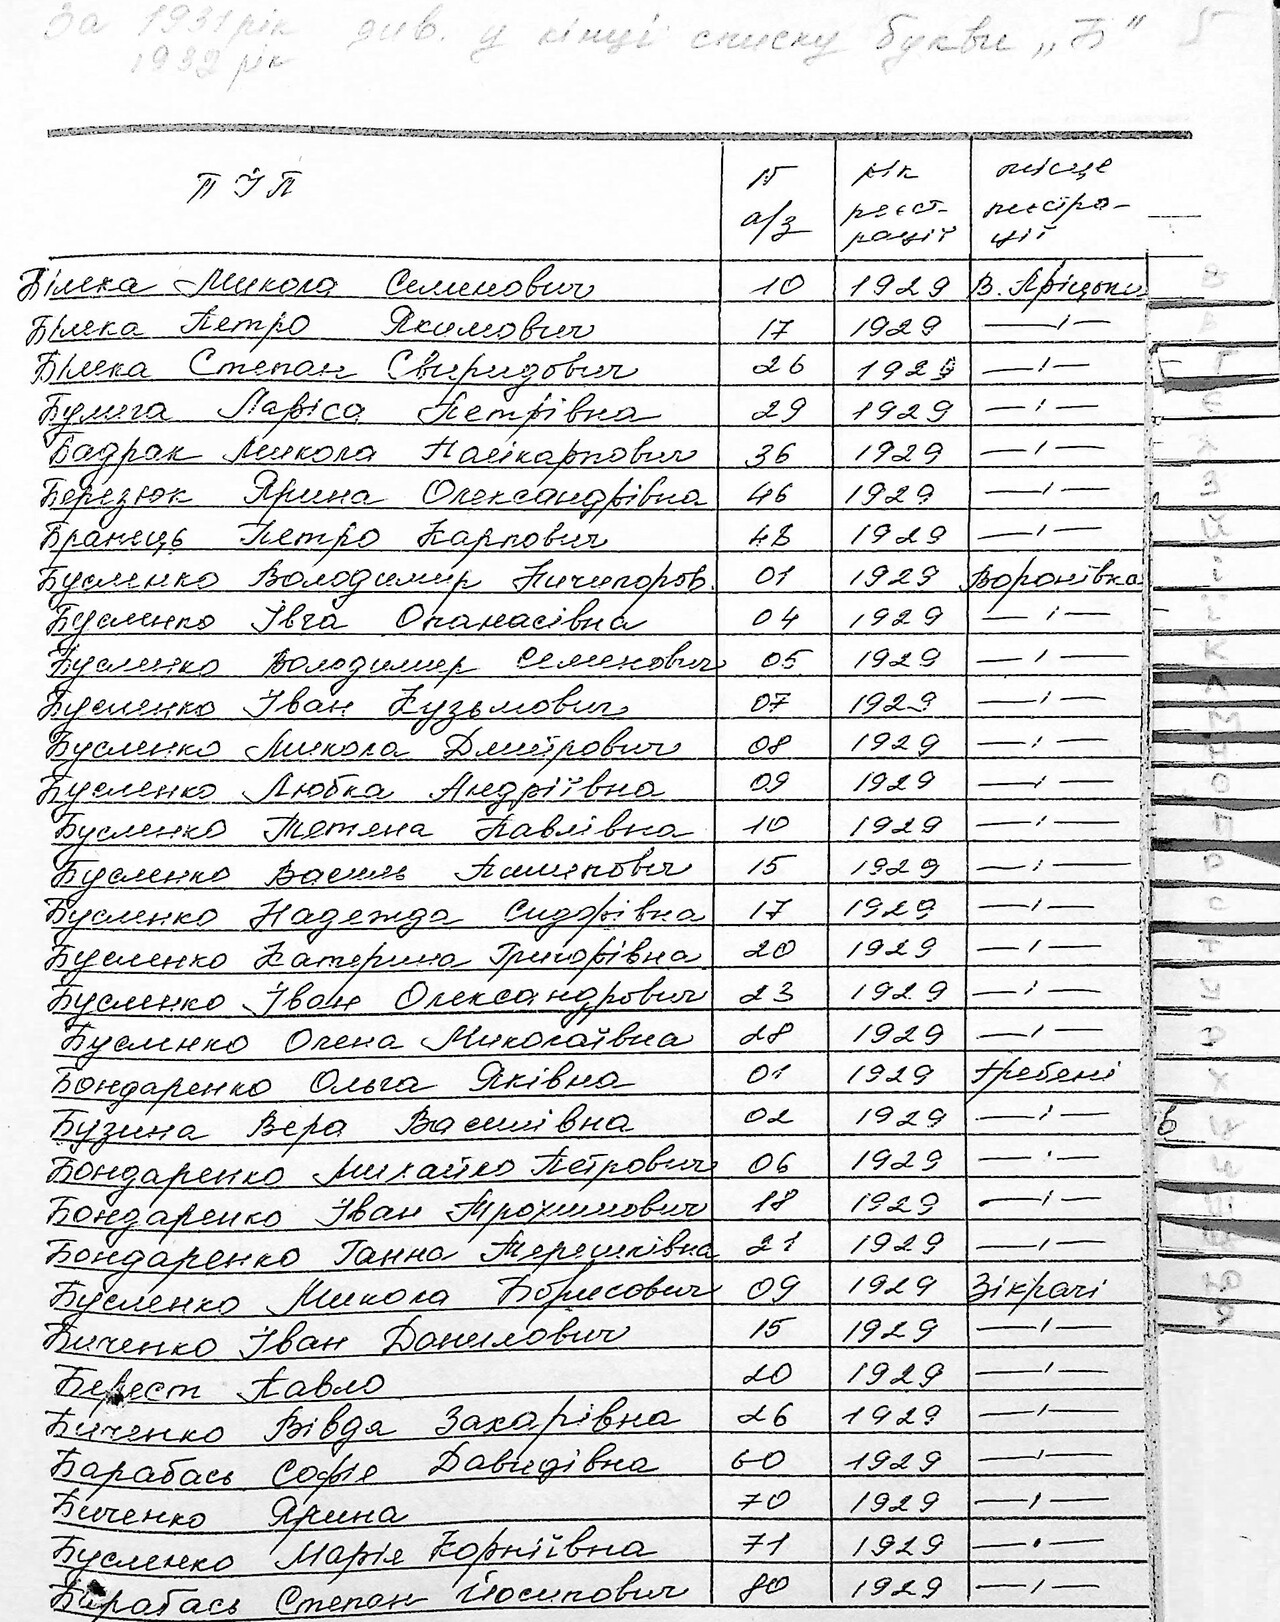 За 1931 рік див. у кінці списку букви „Б" 5
1932 рік
П І П № а/з рік реєст- рації місце реєстра- ції
Білека Микола Семенович 10 1929 В. Пріцьки
Білека Петро Якимович 17 1929 —ı—
Білека Степан Свиридович 26 1929 —ı—
Булига Лариса Петрівна 29 1929 —ı—
Бадрак Микола Полікарпович 36 1929 —ı—
Березюк Ярина Олександрівна 46 1929 —ı—
Бранець Петро Карпович 48 1929 —ı—
Бусленко Володимир Ничипоров. 01 1929 Воронівка
Бусленко Івга Опанасівна 04 1929 —ı—
Бусленко Володимир Семенович 05 1929 —ı—
Бусленко Іван Кузьмович 07 1929 —ı—
Бусленко Микола Дмитрович 08 1929 —ı—
Бусленко Любка Андріївна 09 1929 —ı—
Бусленко Тетяна Павлівна 10 1929 —ı—
Бусленко Василь Пилипович 15 1929 —ı—
Бусленко Надежда Сидорівна 17 1929 —ı—
Бусленко Катерина Григорівна 20 1929 —ı—
Бусленко Іван Олександрович 23 1929 —ı—
Бусленко Олена Миколаївна 28 1929 —ı—
Бондаренко Ольга Яківна 01 1929 Гребені
Бузина Вера Василівна 02 1929 —ı—
Бондаренко Михайло Петрович 06 1929 —ı—
Бондаренко Іван Трохимович 18 1929 —ı—
Бондаренко Ганна Терешківна 21 1929 —ı—
Бусленко Микола Борисович 09 1929 Зікрачі
Биченко Іван Данилович 15 1929 —ı—
Берест Павло 20 1929 —ı—
Биченко Вівдя Захарівна 26 1929 —ı—
Барабась Софія Давидівна 60 1929 —ı—
Биченко Ярина 70 1929 —ı—
Бусленко Марія Корніївна 71 1929 —ı—
Барабась Степан Йосипович 80 1929 —ı—